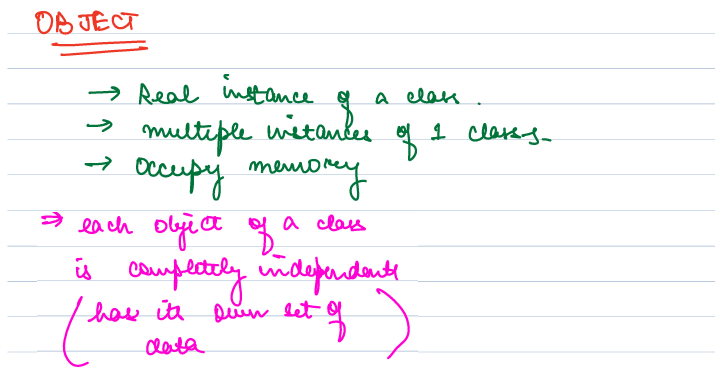 OBJECT
→ Real instance of a class.
→ multiple instances of 1 class.
→ occupy memory
⇒ each object of a class
is completely independent
(has its own set of
data)